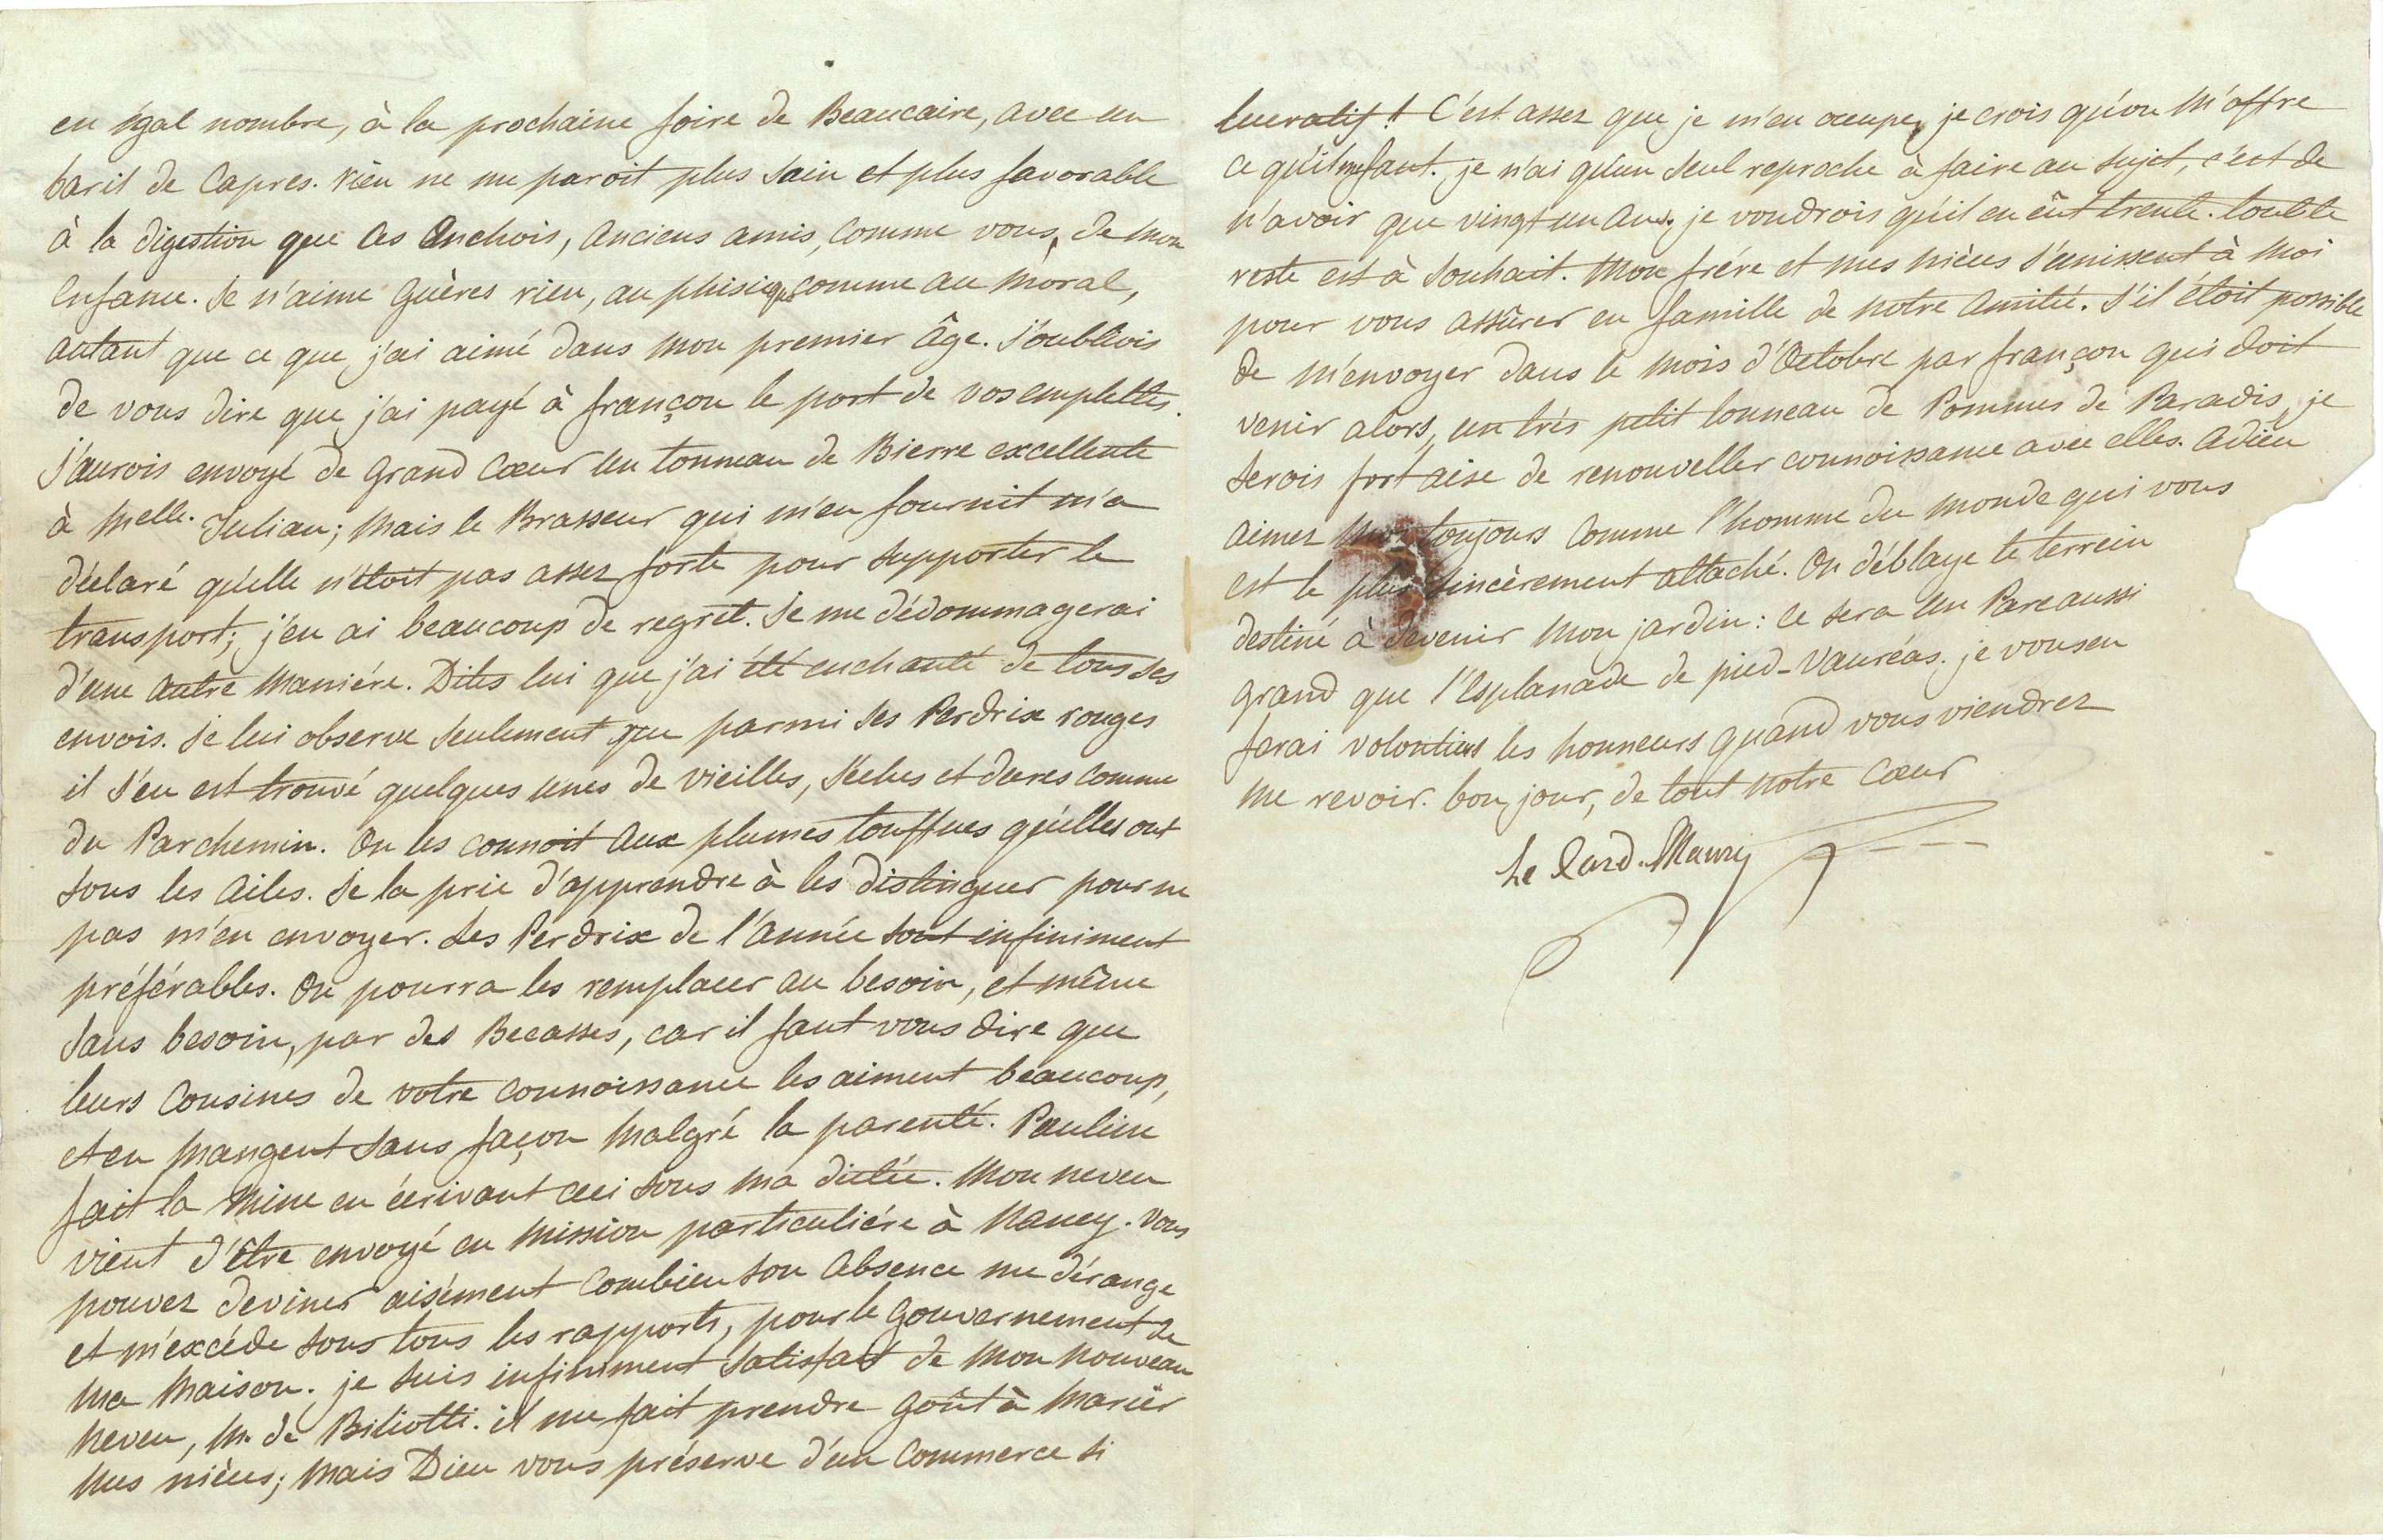 en égal nombre, à la prochaine foire de Beaucaire, avec un
baril de Capres. rien ne me paroit plus sain et plus favorable
à la digestion que ces Anchois, anciens amis, comme vous, de mon
Enfance. Je n'aime guères rien, au phisique comme au moral,
autant que ce que j'ai aimé dans mon premier âge. J'oubliois
de vous dire que j'ai payé à françon le port de vos emplettes.
J'aurois envoyé de grand Cœur un tonneau de Bierre excellente
à Melle. Julian; mais le Brasseur qui m'en fournit m'a
déclaré qu'elle n'étoit pas assez forte pour supporter le
transport; j'en ai beaucoup de regret. Je me dédommagerai
d'une autre maniére. Dites lui que j'ai été enchanté de tous ses
envois. Je lui observe seulement que parmi ses Perdrix rouges
il s'en est trouvé quelques unes de vieilles, séches et dures comme
du Parchemin. On les connoit aux plumes touffues qu'elles ont
sous les ailes. Je la prie d'apprendre à les distinguer pour ne
pas m'en envoyer. Les Perdrix de l'année sont infiniment
préférables. On pourra les remplacer au besoin, et même
sans besoin, par des Becasses, car il faut vous dire que
leurs Cousines de votre connoissance les aiment beaucoup,
et en mangent sans façon malgré la parenté. Pauline
fait la mine en écrivant ceci sous ma dictée. Mon neveu
vient d'être envoyé en mission particuliére à Nancy. Vous
pouvez deviner aisément combien son absence me dérange
et m'excéde sous tous les rapports, pour le gouvernement de
ma maison. je suis infiniment satisfait de mon nouveau
neveu, Mr. de Biliotti. il me fait prendre goût à marier
mes nièces; mais Dieu vous préserve d'un commerce si
lucratif! C'est assez que je m'en occupe, je crois qu'on m'offre
ce qu'il me faut. je n'ai qu'un seul reproche à faire au sujet, c'est de
n'avoir que vingt un ans. je voudrois qu'il en eût trente. tout le
reste est à souhait. Mon frére et mes nièces s'unissent à moi
pour vous assûrer en famille de notre amitié. S'il étoit possible
de m'envoyer dans le mois d'Octobre par françon qui doit
venir alors, un très petit tonneau de Pommes de Paradis, je
serois fort aise de renouveller connoissance avec elles. adieu
aimez moi toujours comme l'homme du monde qui vous
est le plus sincèrement attaché. On déblaye le terrein
destiné à devenir mon jardin: ce sera un Parc aussi
grand que l'Esplanade de pied-Vauréas. je vous en
ferai volontiers les honneurs quand vous viendrez
me revoir. bon jour, de tout notre Cœur
Le Card. Maury